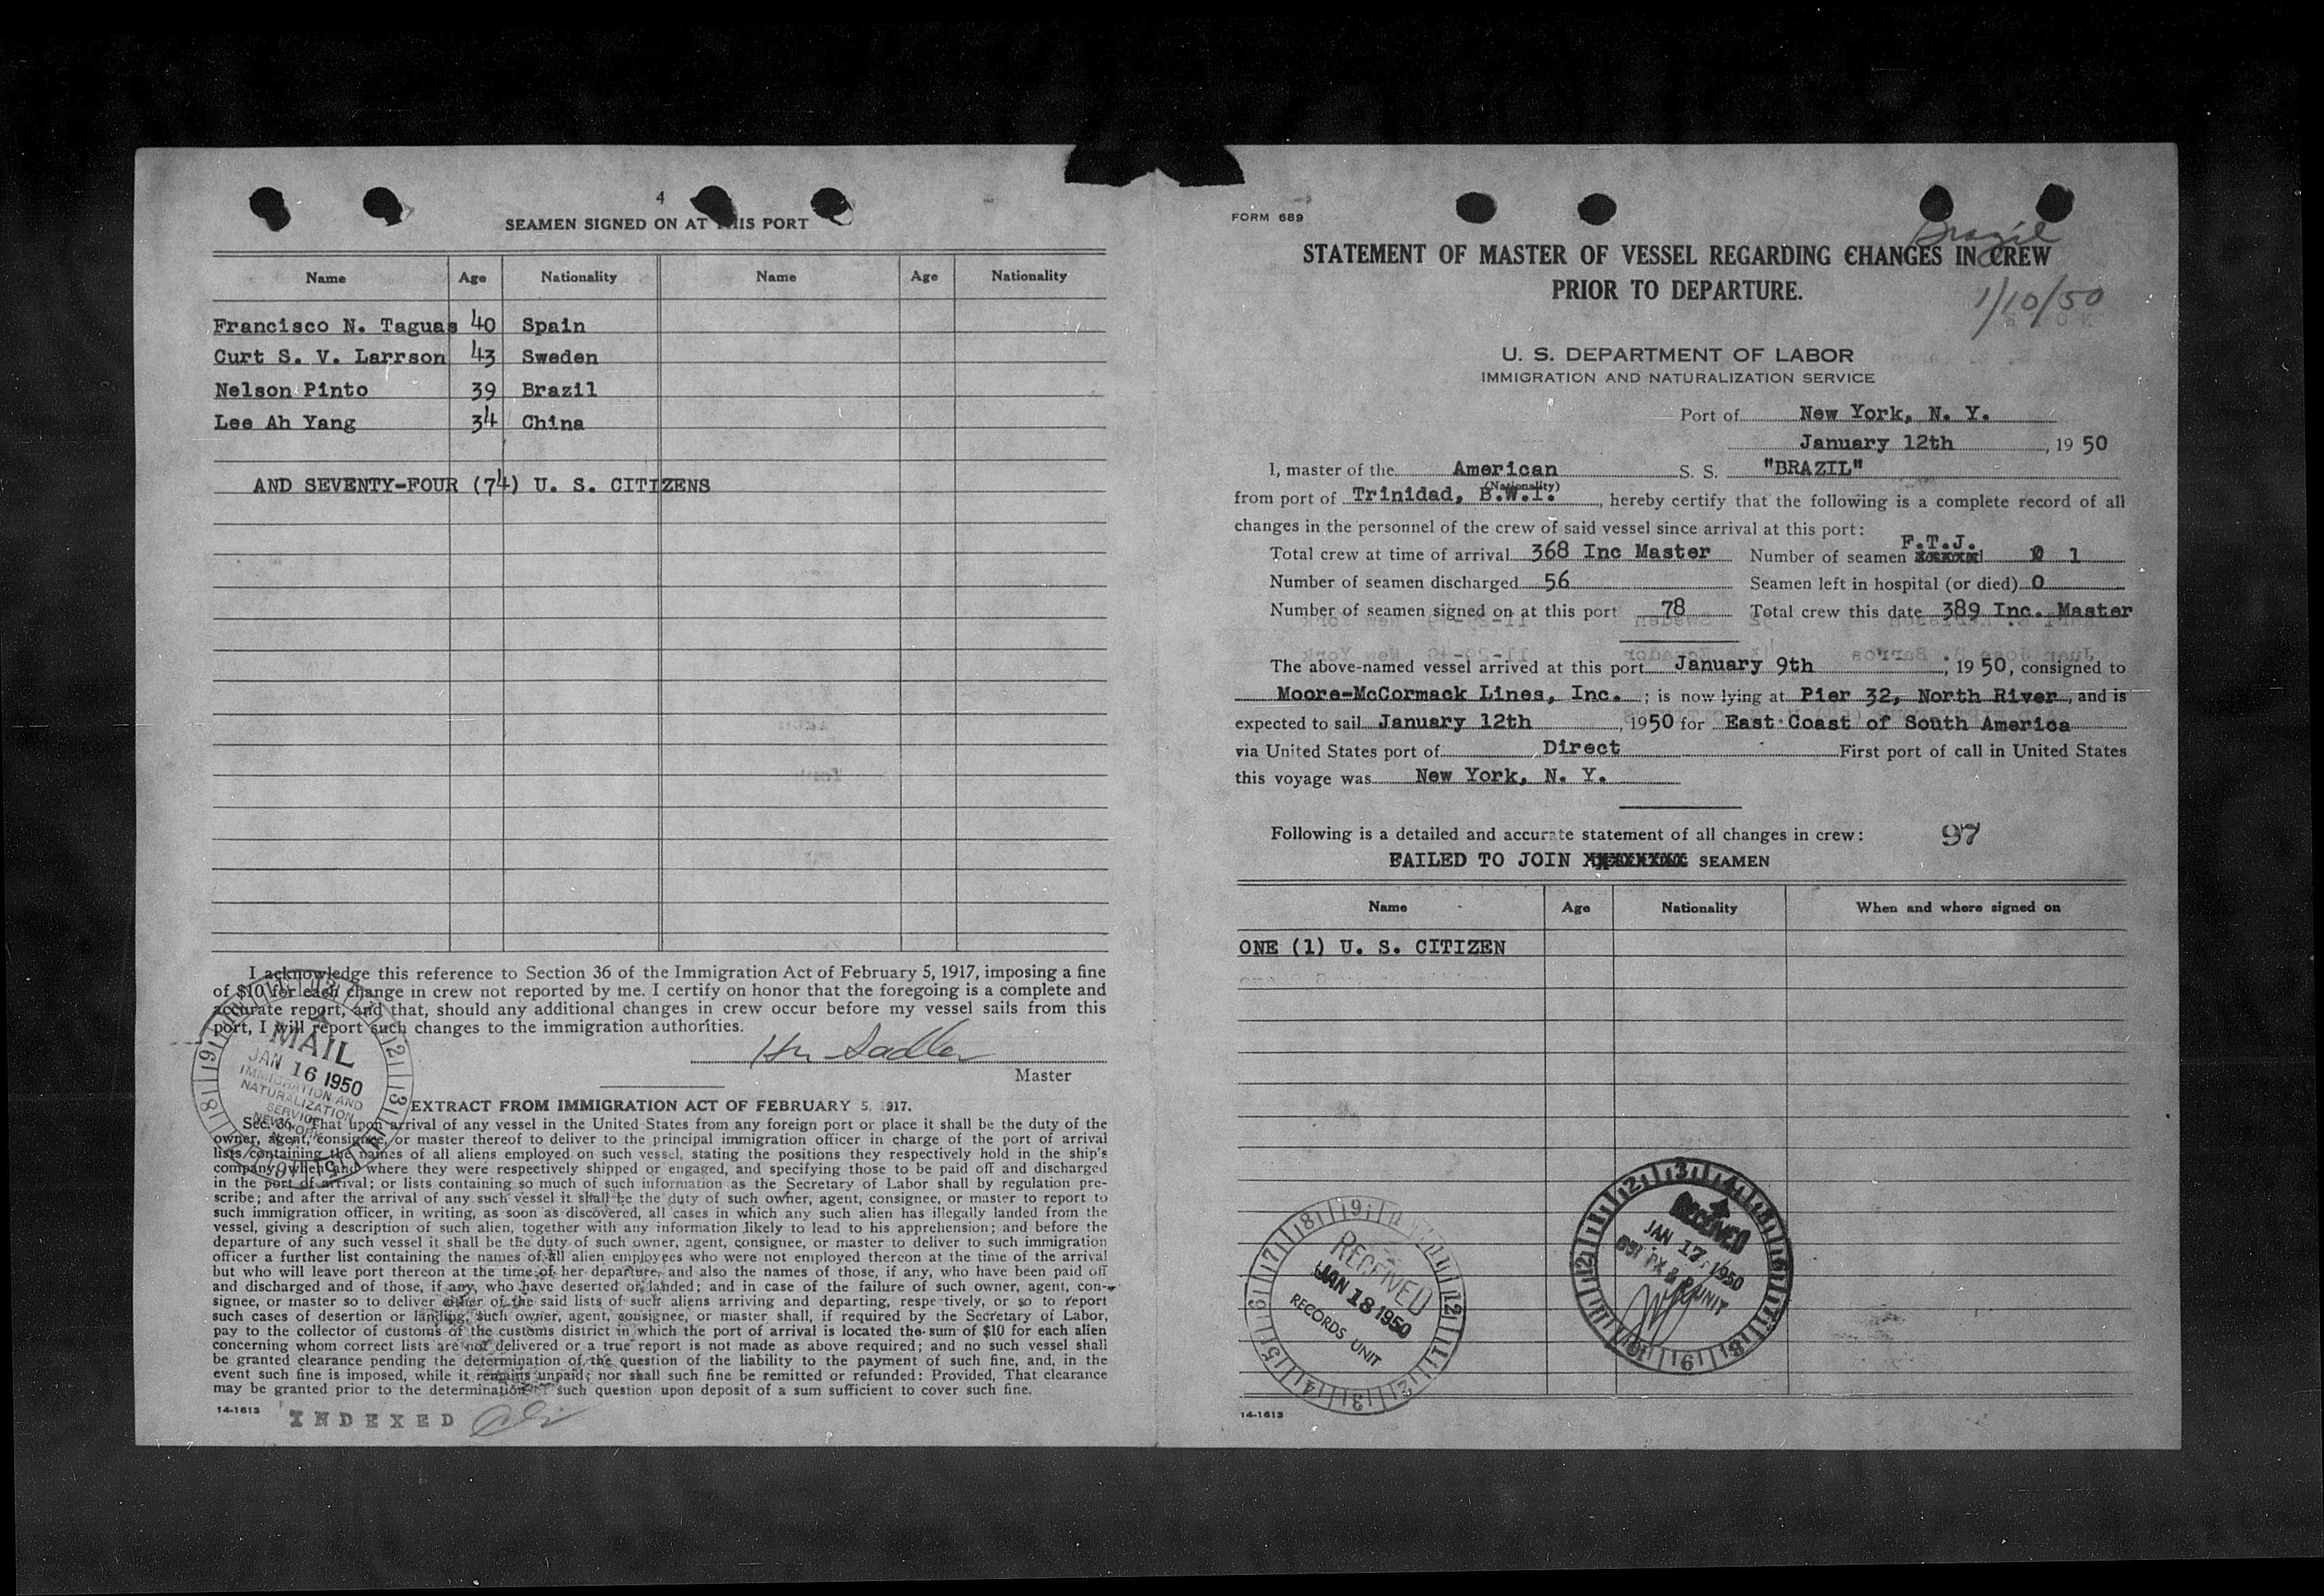 4
SEAMEN SIGNED ON AT THIS PORT
Name Age Nationality Name Age Nationality
Francisco N. Taguas 40 Spain
Curt S. V. Larrson 43 Sweden
Nelson Pinto 39 Brazil
Lee Ah Yang 34 China
AND SEVENTY-FOUR (74) U. S. CITIZENS
I acknowledge this reference to Section 36 of the Immigration Act of February 5, 1917, imposing a fine
of $10 for each change in crew not reported by me. I certify on honor that the foregoing is a complete and
accurate report, and that, should any additional changes in crew occur before my vessel sails from this
port, I will report such changes to the immigration authorities.
Sadler
Master
MAIL
JAN 16 1950
IMMIGRATION AND
NATURALIZATION
SERVICE
NEW YORK
EXTRACT FROM IMMIGRATION ACT OF FEBRUARY 5, 1917.
Sec. 36. That upon arrival of any vessel in the United States from any foreign port or place it shall be the duty of the
owner, agent, consignee, or master thereof to deliver to the principal immigration officer in charge of the port of arrival
lists containing the names of all aliens employed on such vessel, stating the positions they respectively hold in the ship's
company, when and where they were respectively shipped or engaged, and specifying those to be paid off and discharged
in the port of arrival; or lists containing so much of such information as the Secretary of Labor shall by regulation pre-
scribe; and after the arrival of any such vessel it shall be the duty of such owner, agent, consignee, or master to report to
such immigration officer, in writing, as soon as discovered, all cases in which any such alien has illegally landed from the
vessel, giving a description of such alien, together with any information likely to lead to his apprehension; and before the
departure of any such vessel it shall be the duty of such owner, agent, consignee, or master to deliver to such immigration
officer a further list containing the names of all alien employees who were not employed thereon at the time of the arrival
but who will leave port thereon at the time of her departure, and also the names of those, if any, who have been paid off
and discharged and of those, if any, who have deserted or landed; and in case of the failure of such owner, agent, con-
signee, or master so to deliver either of the said lists of such aliens arriving and departing, respectively, or so to report
such cases of desertion or landing, such owner, agent, consignee, or master shall, if required by the Secretary of Labor,
pay to the collector of customs of the customs district in which the port of arrival is located the sum of $10 for each alien
concerning whom correct lists are not delivered or a true report is not made as above required; and no such vessel shall
be granted clearance pending the determination of the question of the liability to the payment of such fine, and, in the
event such fine is imposed, while it remains unpaid; nor shall such fine be remitted or refunded: Provided, That clearance
may be granted prior to the determination of such question upon deposit of a sum sufficient to cover such fine.
14-1613
INDEXED
FORM 689
Brazil
STATEMENT OF MASTER OF VESSEL REGARDING CHANGES IN CREW
PRIOR TO DEPARTURE.
1/10/50
U. S. DEPARTMENT OF LABOR
IMMIGRATION AND NATURALIZATION SERVICE
Port of New York, N. Y.
January 12th, 19 50
I, master of the American S. S. "BRAZIL"
(Nationality)
from port of Trinidad, B.W.I., hereby certify that the following is a complete record of all
changes in the personnel of the crew of said vessel since arrival at this port:
Total crew at time of arrival 368 Inc Master Number of seamen F.T.J. 1
Number of seamen discharged 56 Seamen left in hospital (or died) 0
Number of seamen signed on at this port 78 Total crew this date 389 Inc. Master
The above-named vessel arrived at this port January 9th, 19 50, consigned to
Moore-McCormack Lines, Inc.; is now lying at Pier 32, North River, and is
expected to sail January 12th, 1950 for East Coast of South America
via United States port of Direct First port of call in United States
this voyage was New York, N. Y.
Following is a detailed and accurate statement of all changes in crew: 97
FAILED TO JOIN SEAMEN
Name Age Nationality When and where signed on
ONE (1) U. S. CITIZEN
RECEIVED
JAN 18 1950
RECORDS UNIT
RECEIVED
JAN 17 1950
UNIT
14-1613